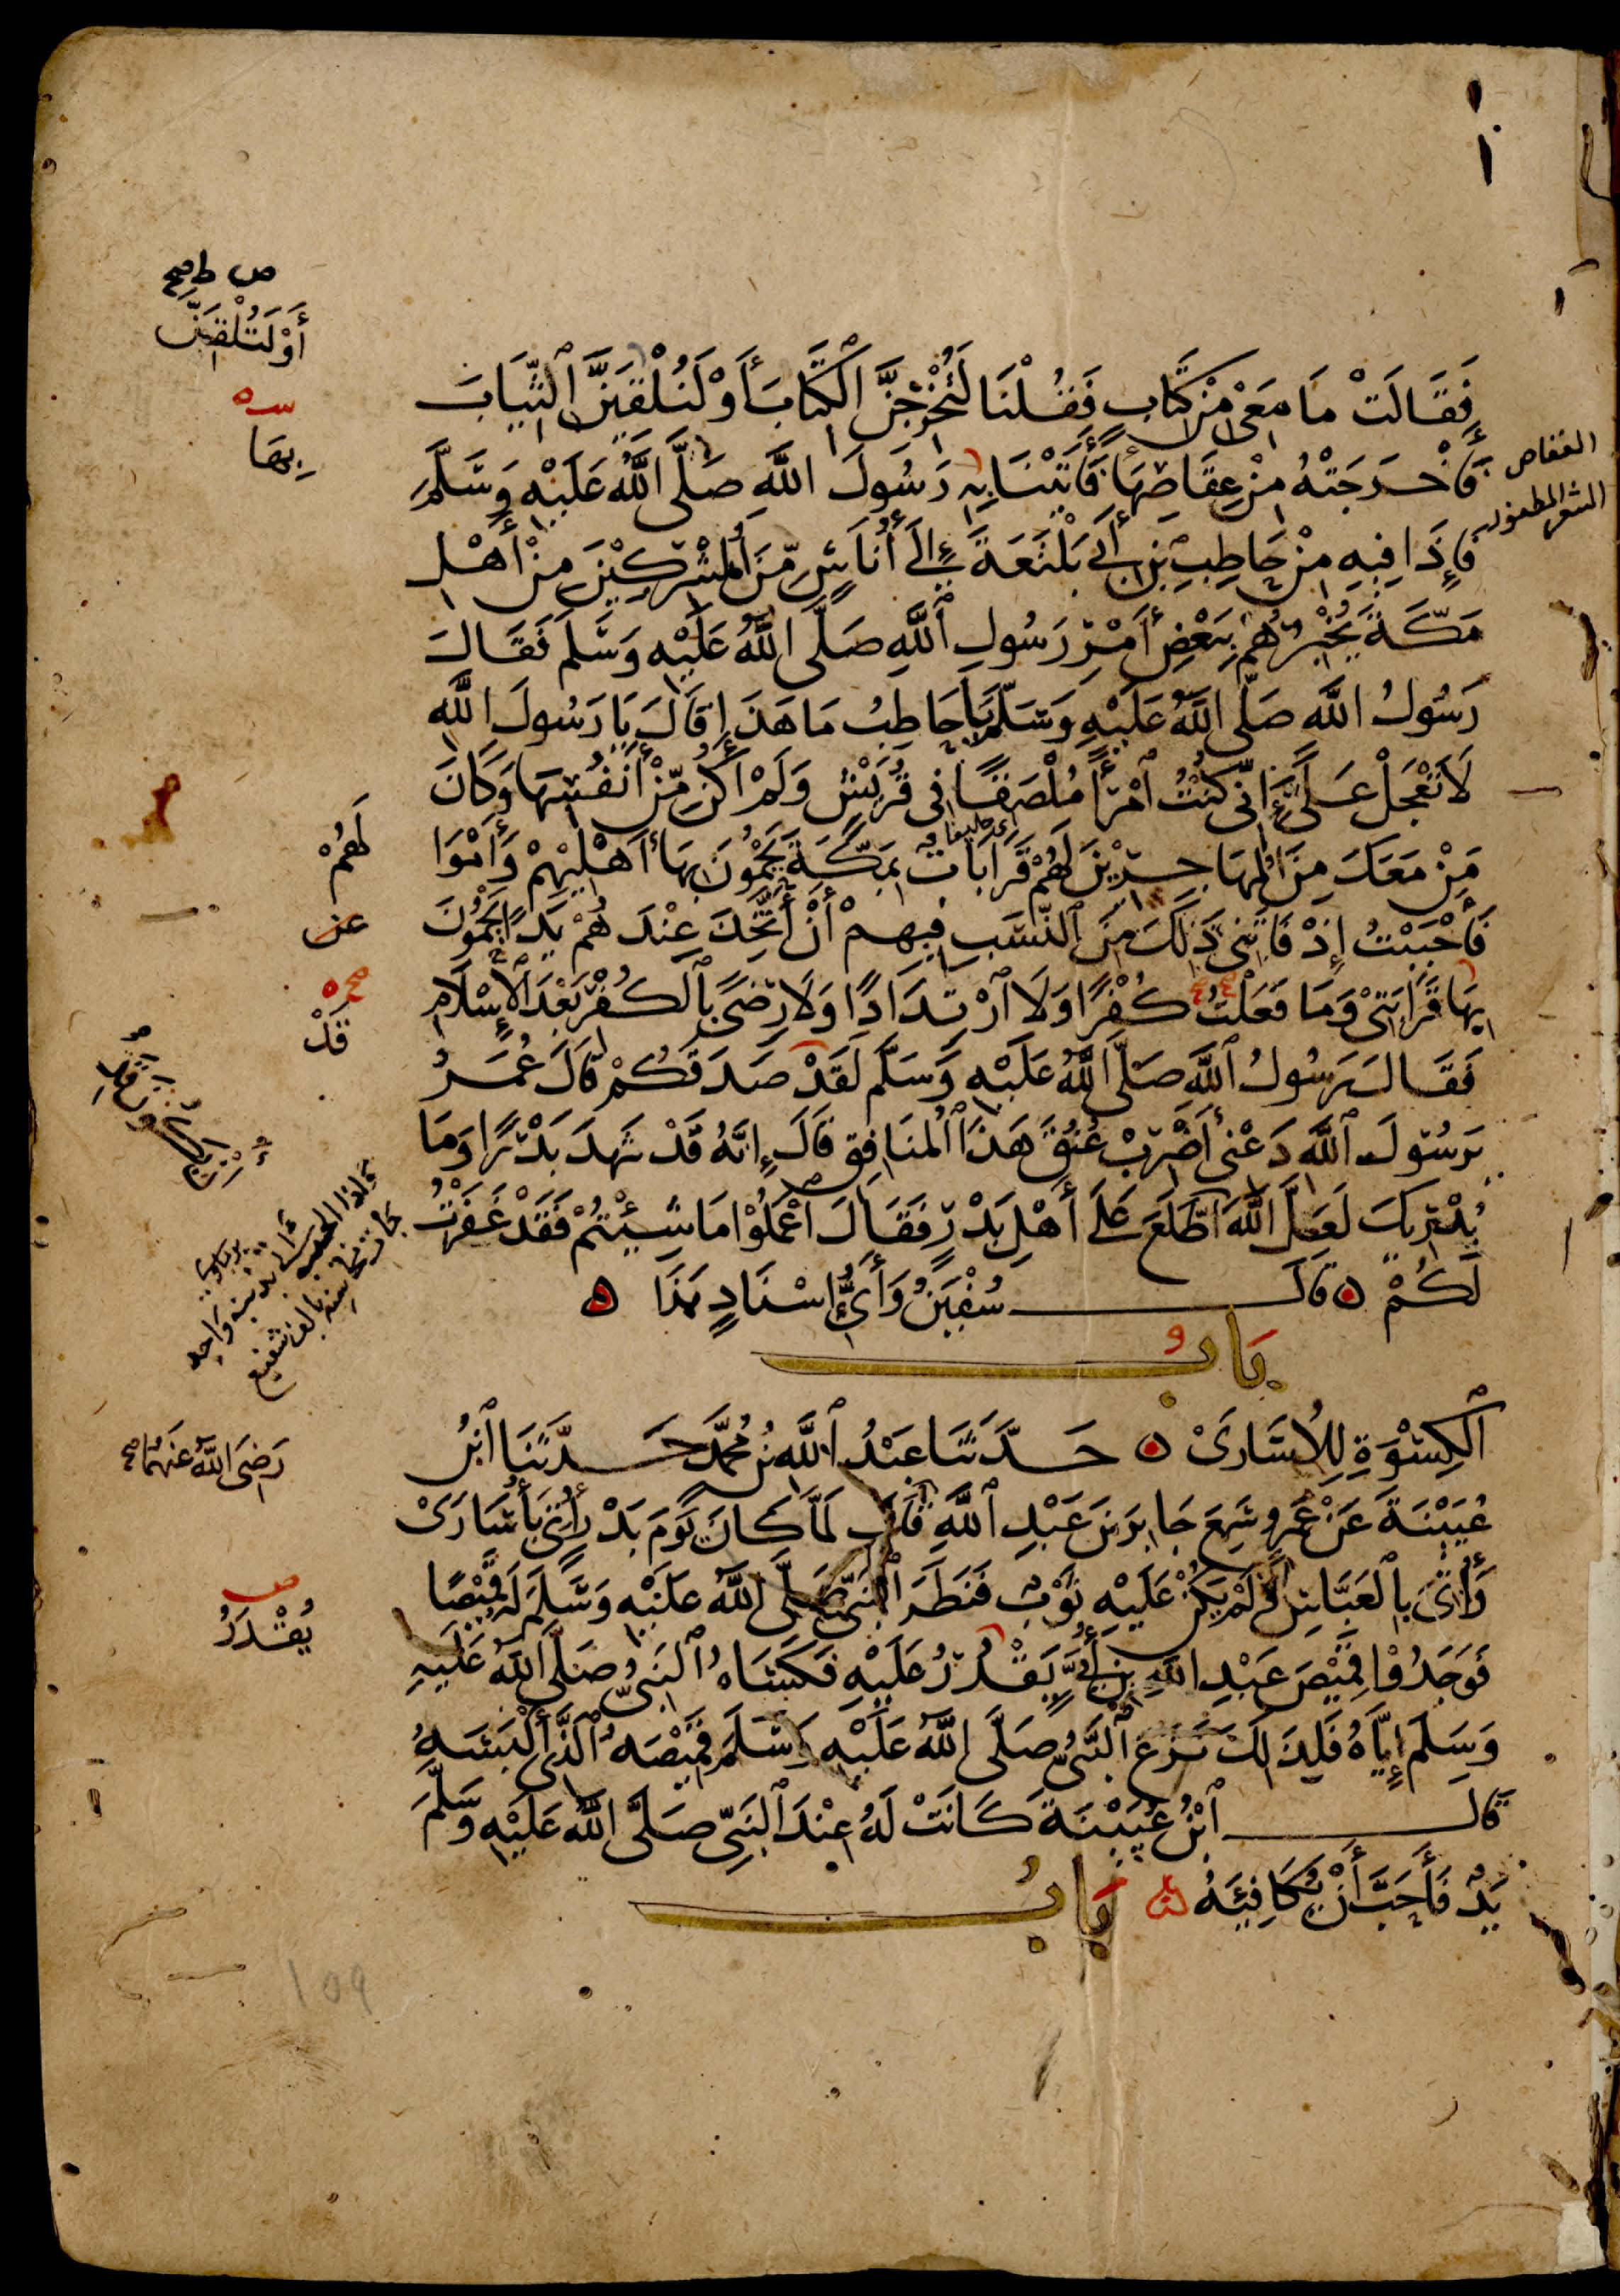 فَقَالَتْ مَا مَعِي مِنْ كِتَابٍ فَقُلْنَا لَتُخْرِجِنَّ الْكِتَابَ أَوْ لَنُلْقِيَنَّ الثِّيَابَ
فَأَخْرَجَتْهُ مِنْ عِقَاصِهَا فَأَتَيْنَا بِهِ رَسُولَ اللَّهِ صَلَّى اللَّهُ عَلَيْهِ وَسَلَّمَ
فَإِذَا فِيهِ مِنْ حَاطِبِ بْنِ أَبِي بَلْتَعَةَ إِلَى أُنَاسٍ مِنَ الْمُشْرِكِينَ مِنْ أَهْلِ
مَكَّةَ يُخْبِرُهُمْ بِبَعْضِ أَمْرِ رَسُولِ اللَّهِ صَلَّى اللَّهُ عَلَيْهِ وَسَلَّمَ فَقَالَ
رَسُولُ اللَّهِ صَلَّى اللَّهُ عَلَيْهِ وَسَلَّمَ يَا حَاطِبُ مَا هَذَا قَالَ يَا رَسُولَ اللَّهِ
لَا تَعْجَلْ عَلَيَّ إِنِّي كُنْتُ امْرَأً مُلْصَقًا فِي قُرَيْشٍ وَلَمْ أَكُنْ مِنْ أَنْفُسِهَا وَكَانَ
مَنْ مَعَكَ مِنَ الْمُهَاجِرِينَ لَهُمْ قَرَابَاتٌ بِمَكَّةَ يَحْمُونَ بِهَا أَهْلِيهِمْ وَأَمْوَا
فَأَحْبَبْتُ إِذْ فَاتَنِي ذَلِكَ مِنَ النَّسَبِ فِيهِمْ أَنْ أَتَّخِذَ عِنْدَهُمْ يَدًا يَحْمُونَ
بِهَا قَرَابَتِي وَمَا فَعَلْتُ كُفْرًا وَلَا ارْتِدَادًا وَلَا رِضًى بِالْكُفْرِ بَعْدَ الْإِسْلَامِ
فَقَالَ رَسُولُ اللَّهِ صَلَّى اللَّهُ عَلَيْهِ وَسَلَّمَ لَقَدْ صَدَقَكُمْ قَالَ عُمَرُ
يَرَسُولَ اللَّهِ دَعْنِي أَضْرِبْ عُنُقَ هَذَا الْمُنَافِقِ قَالَ إِنَّهُ قَدْ شَهِدَ بَدْرًا وَمَا
يُدْرِيكَ لَعَلَّ اللَّهَ اطَّلَعَ عَلَى أَهْلِ بَدْرٍ فَقَالَ اعْمَلُوا مَا شِئْتُمْ فَقَدْ غَفَرْتُ
لَكُمْ ه قَالَ سُفْيَنُ وَأَيُّ إِسْنَادٍ هَذَا ه
بَابُ
الْكِسْوَةِ لِلْأُسَارَى ه حَدَّثَنَا عَبْدُ اللَّهِ بْنُ مُحَمَّدٍ حَدَّثَنَا ابْنُ
عُيَيْنَةَ عَنْ عَمْرٍو سَمِعَ جَابِرَ بْنَ عَبْدِ اللَّهِ قَالَ لَمَّا كَانَ يَوْمَ بَدْرٍ أُتِيَ بِأُسَارَى
وَأُتِيَ بِالْعَبَّاسِ وَلَمْ يَكُنْ عَلَيْهِ ثَوْبٌ فَنَظَرَ النَّبِيُّ صَلَّى اللَّهُ عَلَيْهِ وَسَلَّمَ لَهُ قَمِيصًا
فَوَجَدُوا قَمِيصَ عَبْدِ اللَّهِ بْنِ أُبَيٍّ يَقْدُرُ عَلَيْهِ فَكَسَاهُ النَّبِيُّ صَلَّى اللَّهُ عَلَيْهِ
وَسَلَّمَ إِيَّاهُ فَلِذَلِكَ نَزَعَ النَّبِيُّ صَلَّى اللَّهُ عَلَيْهِ وَسَلَّمَ قَمِيصَهُ الَّذِي أَلْبَسَهُ
قَالَ ابْنُ عُيَيْنَةَ كَانَتْ لَهُ عِنْدَ النَّبِيِّ صَلَّى اللَّهُ عَلَيْهِ وَسَلَّمَ
يَدٌ فَأَحَبَّ أَنْ يُكَافِئَهُ ه بَابُ
ص ط صح
أَوْ لَتُلْقِيَنَّ
بِهَا
العقاص
الشعر المظفور
لَهُمْ
قَدْ
رَضِيَ اللَّهُ عَنْهُمَا صح
يُقْدَرُ
109